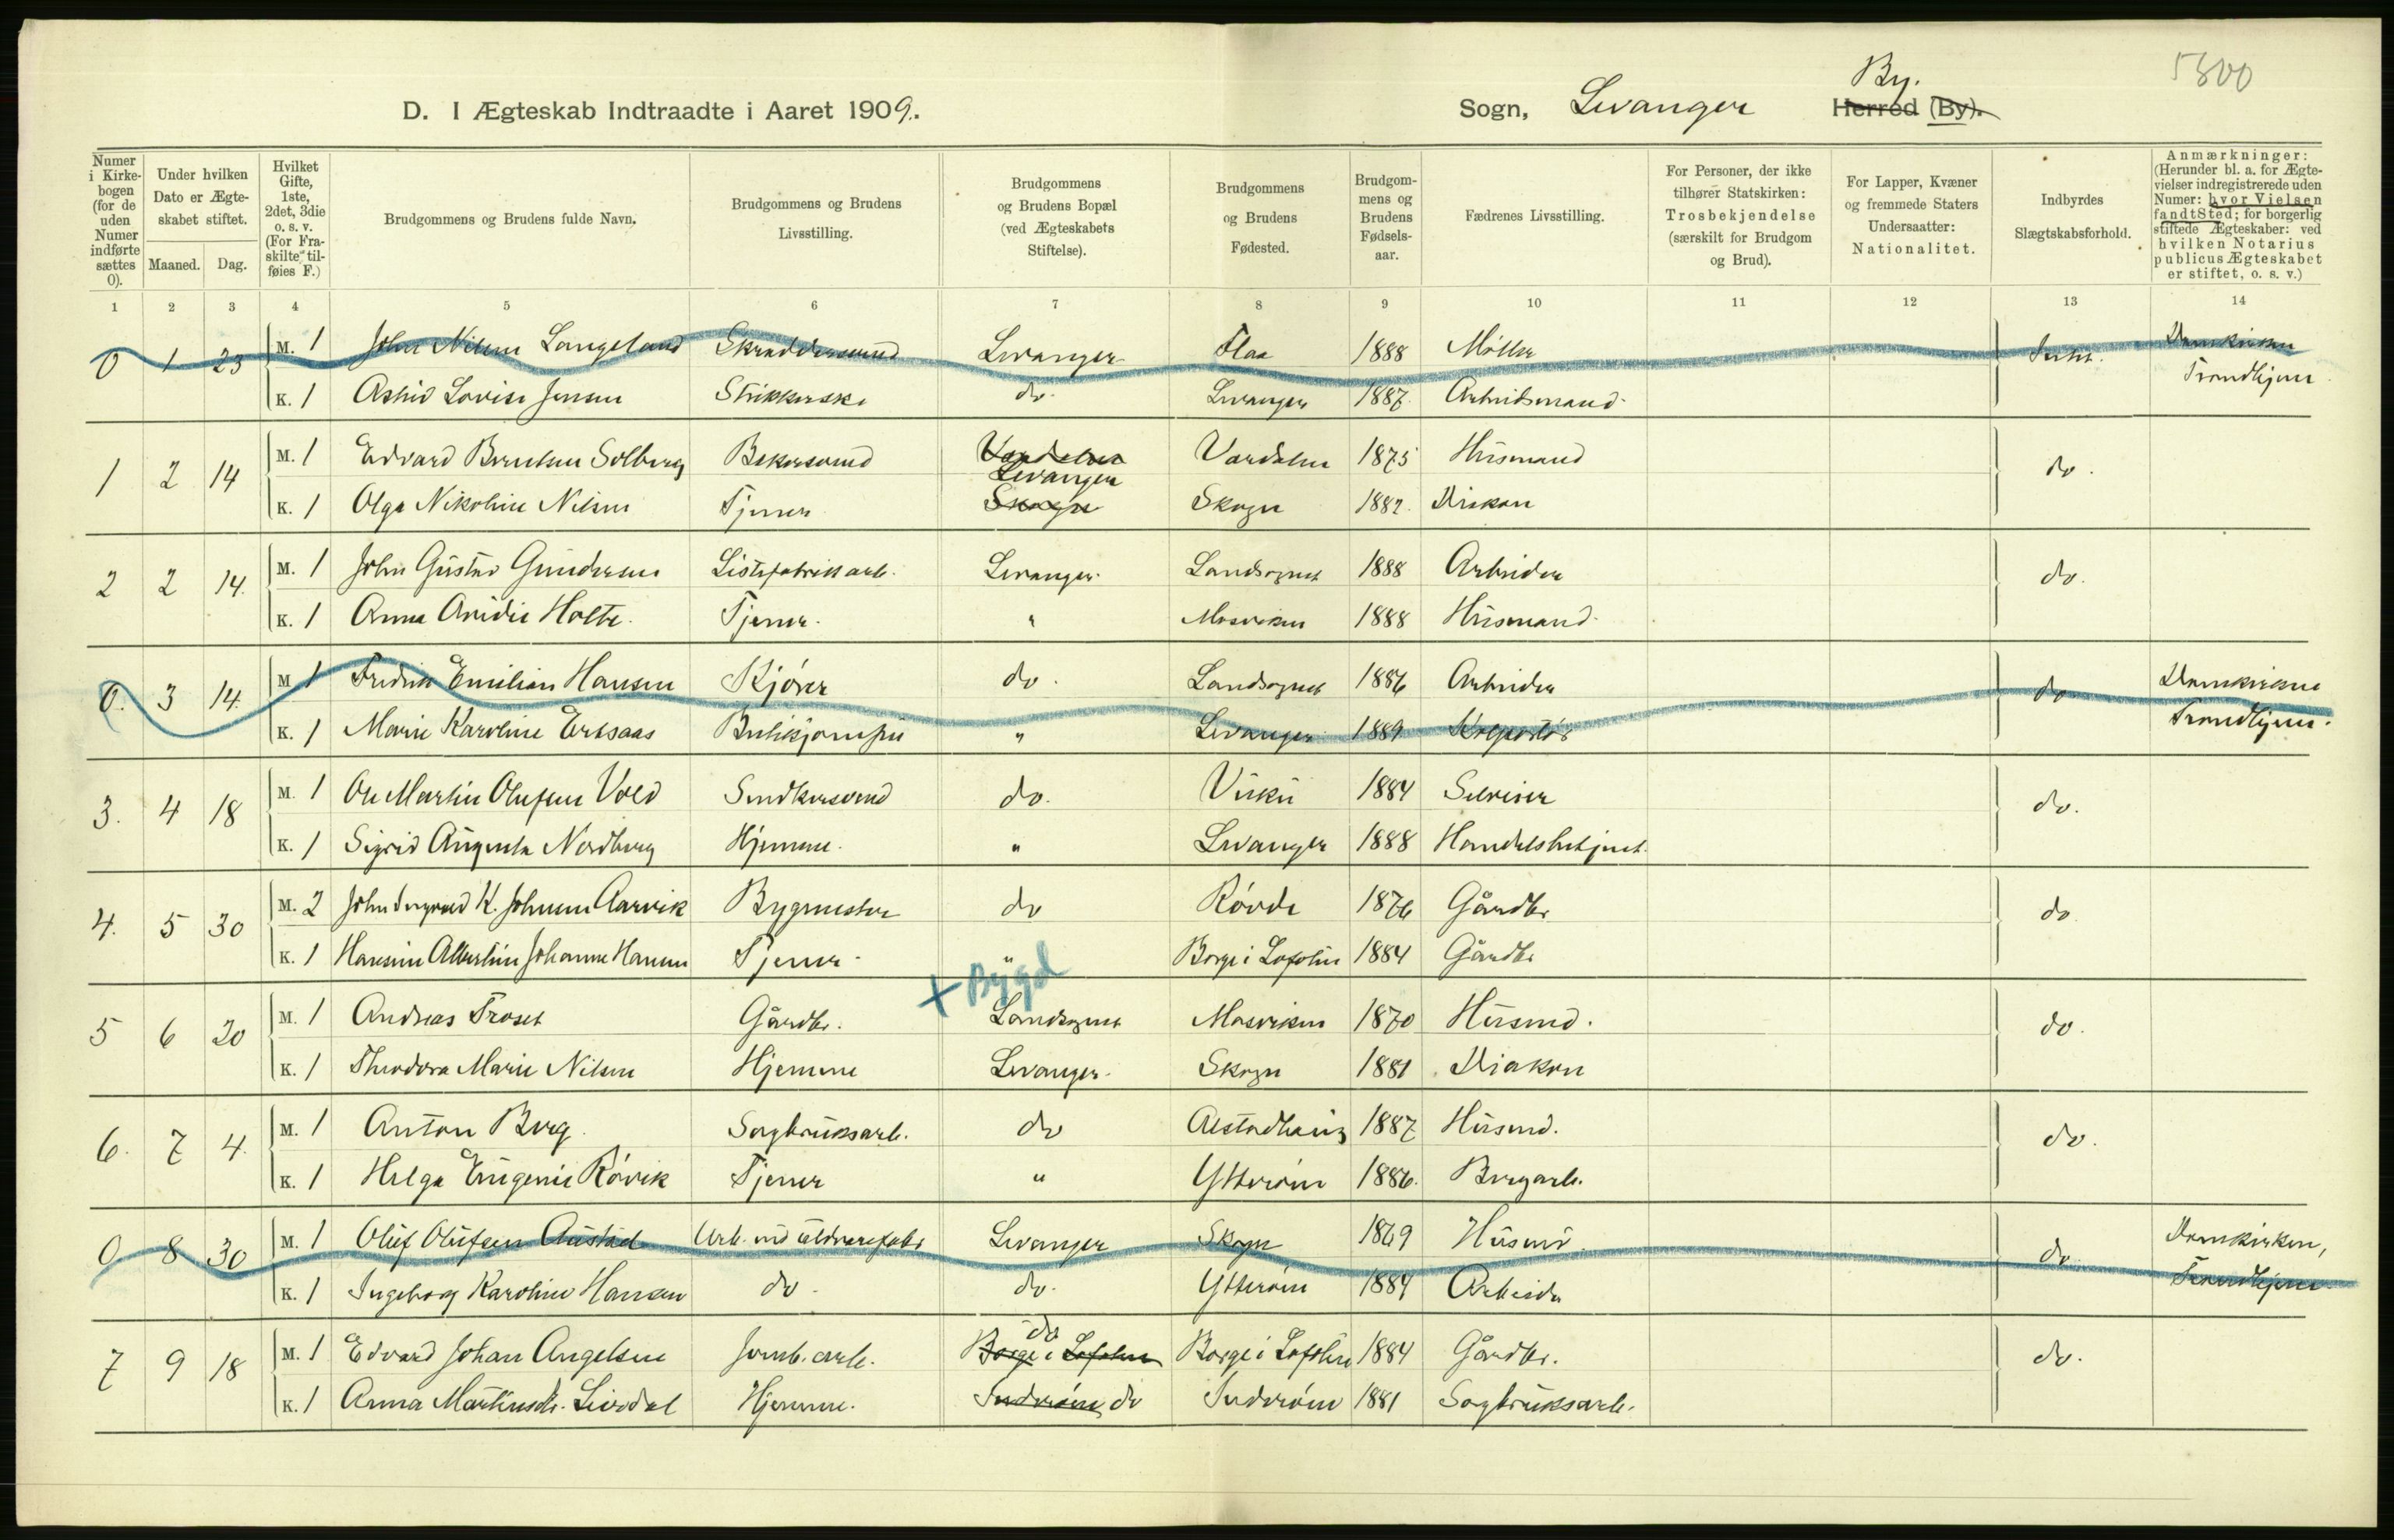 5800
By.
D. I Ægteskab Indtraadte i Aaret 1909.
Sogn, Levanger Herred (By).
Numer i Kirkebogen (for de uden Numer indførte sættes 0).
Under hvilken Dato er Ægteskabet stiftet.
Maaned. Dag.
Hvilket Gifte, 1ste, 2det, 3die o. s. v. (For Fraskilte tilføies F.)
Brudgommens og Brudens fulde Navn.
Brudgommens og Brudens Livsstilling.
Brudgommens og Brudens Bopæl (ved Ægteskabets Stiftelse).
Brudgommens og Brudens Fødested.
Brudgommens og Brudens Fødselsaar.
Fædrenes Livsstilling.
For Personer, der ikke tilhører Statskirken: Trosbekjendelse (særskilt for Brudgom og Brud).
For Lapper, Kvæner og fremmede Staters Undersaatter: Nationalitet.
Indbyrdes Slægtskabsforhold.
Anmærkninger: (Herunder bl. a. for Ægtevielser indregistrerede uden Numer: hvor Vielsen fandt Sted; for borgerlig stiftede Ægteskaber: ved hvilken Notarius publicus Ægteskabet er stiftet, o. s. v.)
1 2 3 4 5 6 7 8 9 10 11 12 13 14
0 1 23 M. 1 John Nilsen Langeland Skræddersvend Levanger Flaa 1888 Møller Intet. Domkirken
K. 1 Astrid Lovise Jensen Strikkerske do. Levanger 1887 Arbeidsmand Trondhjem
1 2 14 M. 1 Edvard Berntsen Solberg Bakersvend Værdalen Levanger Værdalen 1875 Husmand do.
K. 1 Olga Nikoline Nilsen Tjener Skogn Skogn 1882. Diakon
2 2 14. M. 1 John Gustav Gundersen Listefabrikarb. Levanger Landsognet 1888 Arbeider do.
K. 1 Anna Ovidie Holte. Tjener. " Mosviken 1888 Husmand
0. 3 14. M 1 Fredrik Emilian Hansen Kjører do. Landsognet 1886 Arbeider do Domkirken
K. 1 Marie Karoline Ertsaas Butikjomfru " Levanger 1889 Kolportør Trondhjem.
3. 4 18 M. 1 Ole Martin Olufsen Vold Smedkersvend do. Vuku 1884 Selveier do.
K. 1 Sigrid Augusta Nordberg Hjemme. " Levanger 1888 Handelsbetjent
4. 5 30 M. 2 John Ingvald K. Johnsen Aarvik Bygmester do Røvde 1876 Gårdbr. do
K. 1 Hansine Albertine Johanne Hansen Tjener " Borge i Lofoten 1884 Gårdbr
+ Bygd
5 6 20 M. 1 Andreas Troset Gårdbr. Landsognet Mosviken 1870 Husmd. do.
K. 1 Theodora Marie Nilsen Hjemme Levanger Skogn 1881 Diakon
6. 7 4. M. 1 Anton Berg Sagbruksarb. do Alstadhaug 1887 Husmd. do.
K. 1 Helga Eugenie Røvik Tjener " Ytterøen 1886. Bergarb.
0 8 30 M. 1 Oluf Olufsen Austad Arb. ved uldvarefabr Levanger Skogn 1869 Husmd do Domkirken,
K. 1 Ingeborg Karoline Hansen do. do. Ytterøen 1884 Arbeider Trondhjem
7 9 18 M. 1 Edvard Johan Angelsen Jernb. arb. Borge i Lofoten do Borge i Lofoten 1884 Gårdbr. do.
K. 1 Anna Martinusdtr. Liердal Hjemme. Inderøen do Inderøen 1881 Sagbruksarb.